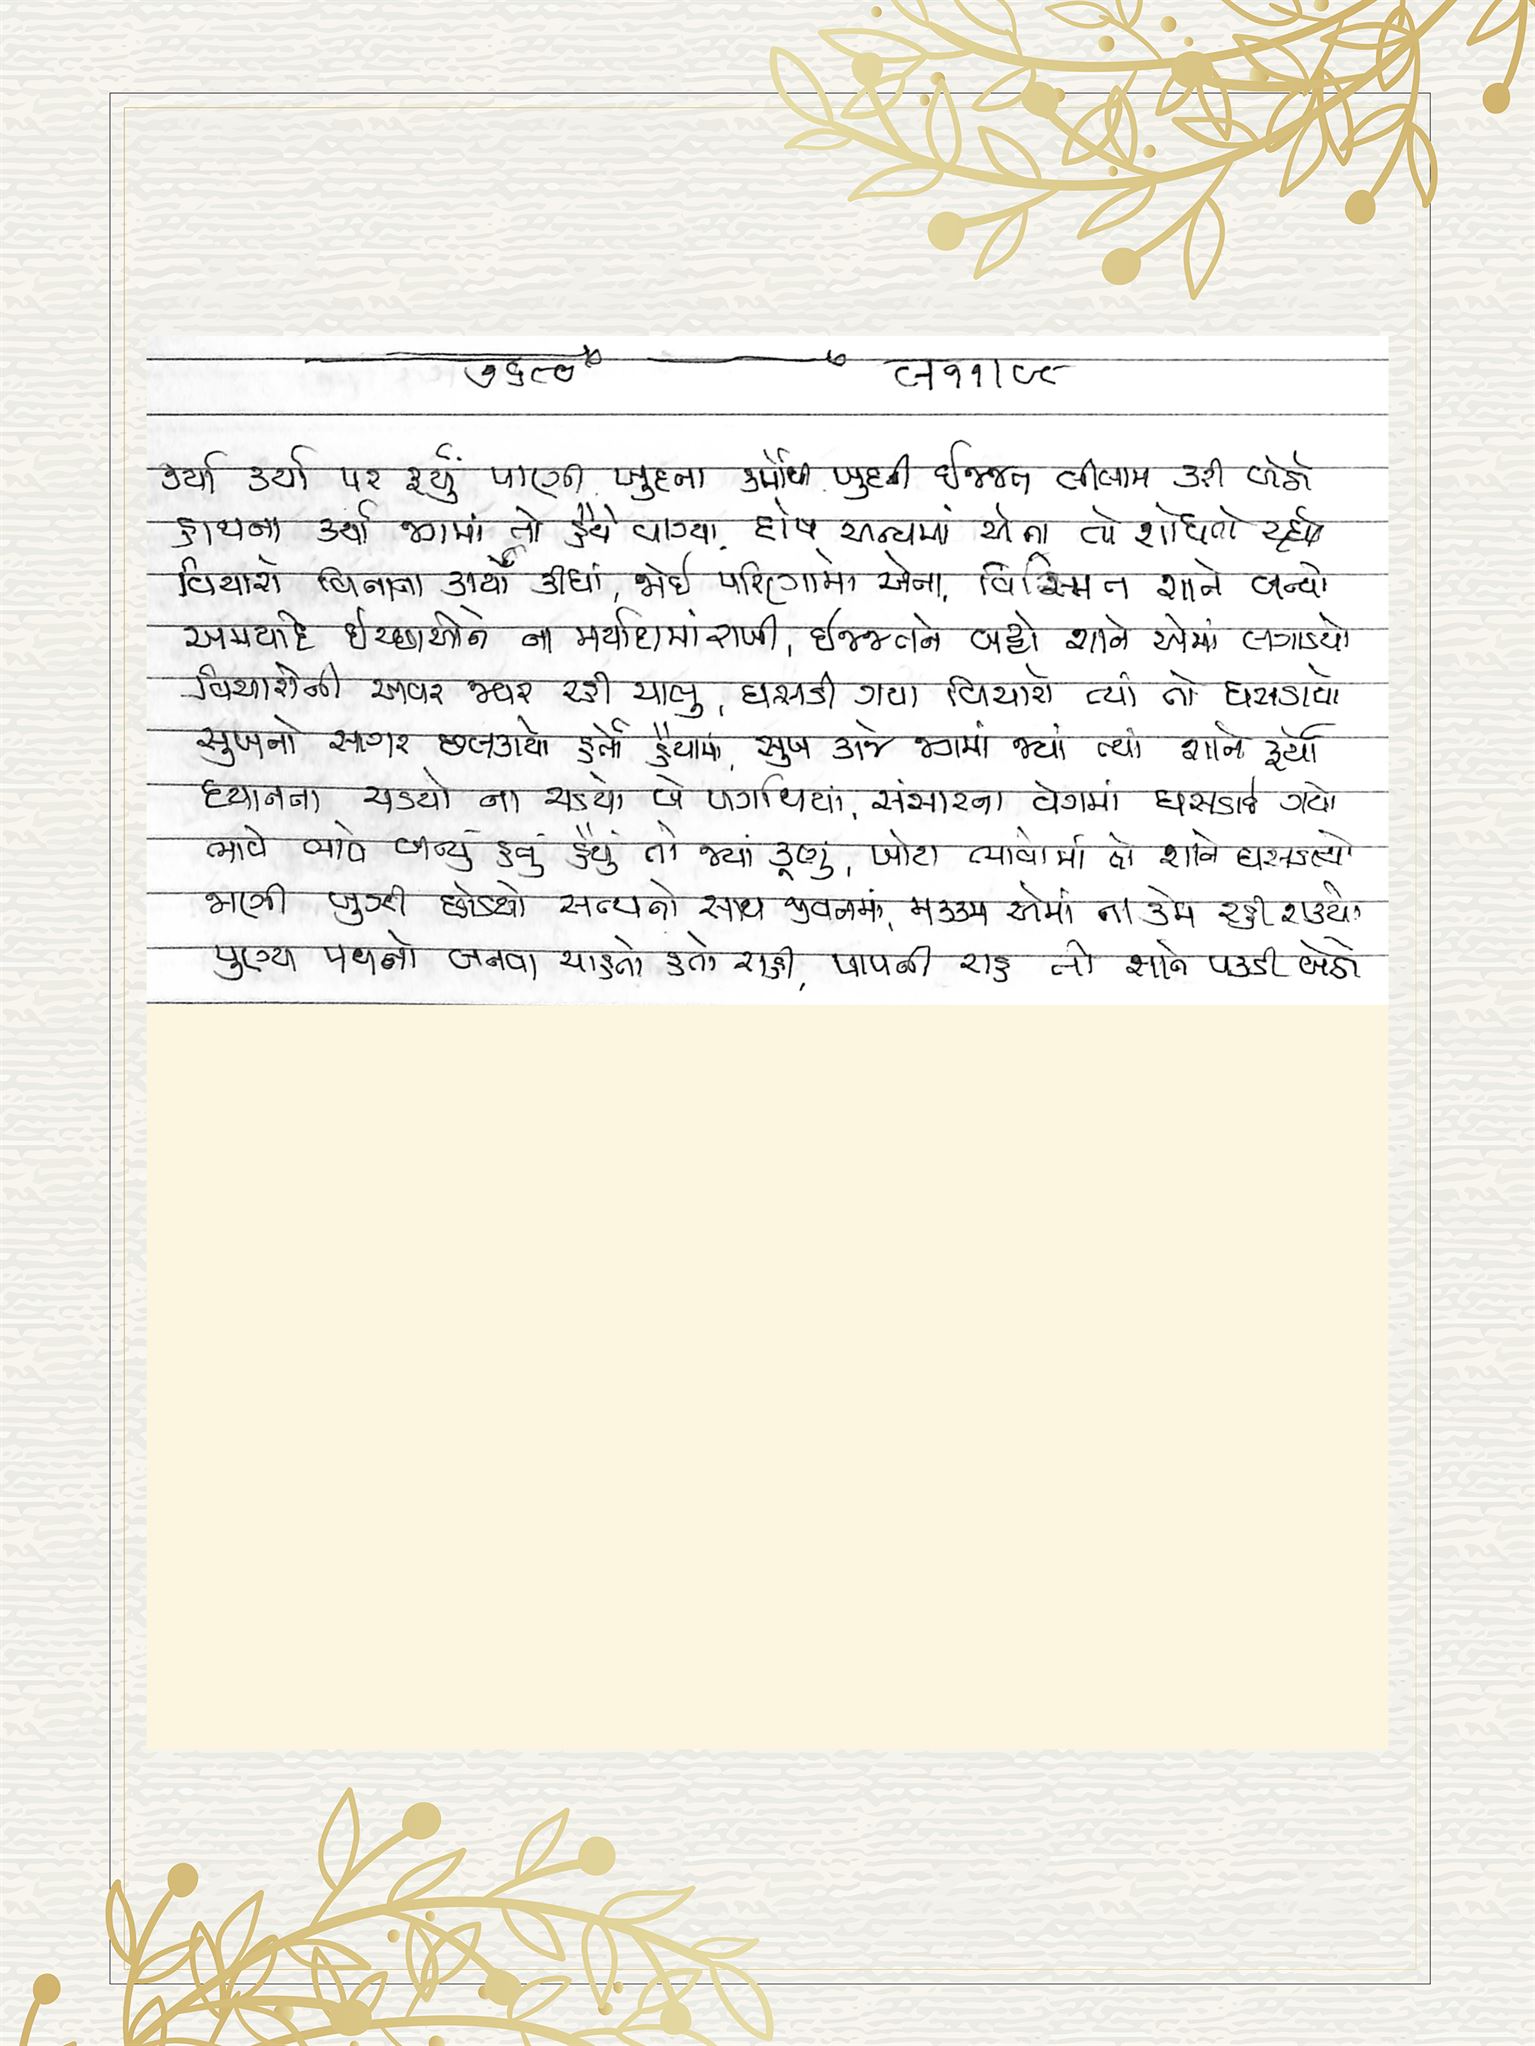 કર્યા કર્યા પર ફર્યું પાણી, ખુદના કર્મોથી ખુદની ઈજ્જત લીલામ કરી બેઠો
હાથના કર્યા જગમાં તો હૈયે વાગ્યા, દોષ અન્યમાં એના તો શોધતો રહ્યો
વિચારો વિનાના કાર્યો કીધાં, જોઈ પરિણામો એના, વિસ્મિત શાને બન્યો
અમર્યાદિ ઈચ્છાઓને ના મર્યાદામાં રાખી, ઈજ્જતને બટ્ટો શાને એમાં લગાડયો
વિચારોની અવર જ્વર રહી ચાલુ, ઘસડી ગયા વિચારો ત્યાં તો ઘસડાયો
સુખનો સાગર છલકાયો હતો હૈયામાં, સુખ કાજે જગમાં જ્યાં ત્યાં શાને ફર્યો
ધ્યાનના ચડયો ના ચડયો બે પગથિયાં, સંસારના વેગમાં ઘસડાઈ ગયો
ભાવે ભાવે બન્યું હતું હૈયું તો જ્યાં કૂણું, ખોટા ભાવોમાં તો શાને ઘસડાયો
જાણી બુઝી છોડયો સત્યનો સાથ જીવનમાં, મક્કમ એમાં ના કેમ રહી શક્યો
પુણ્ય પથનો બનવા ચાહતો હતો રાહી, પાપની રાહ તો શાને પકડી બેઠો